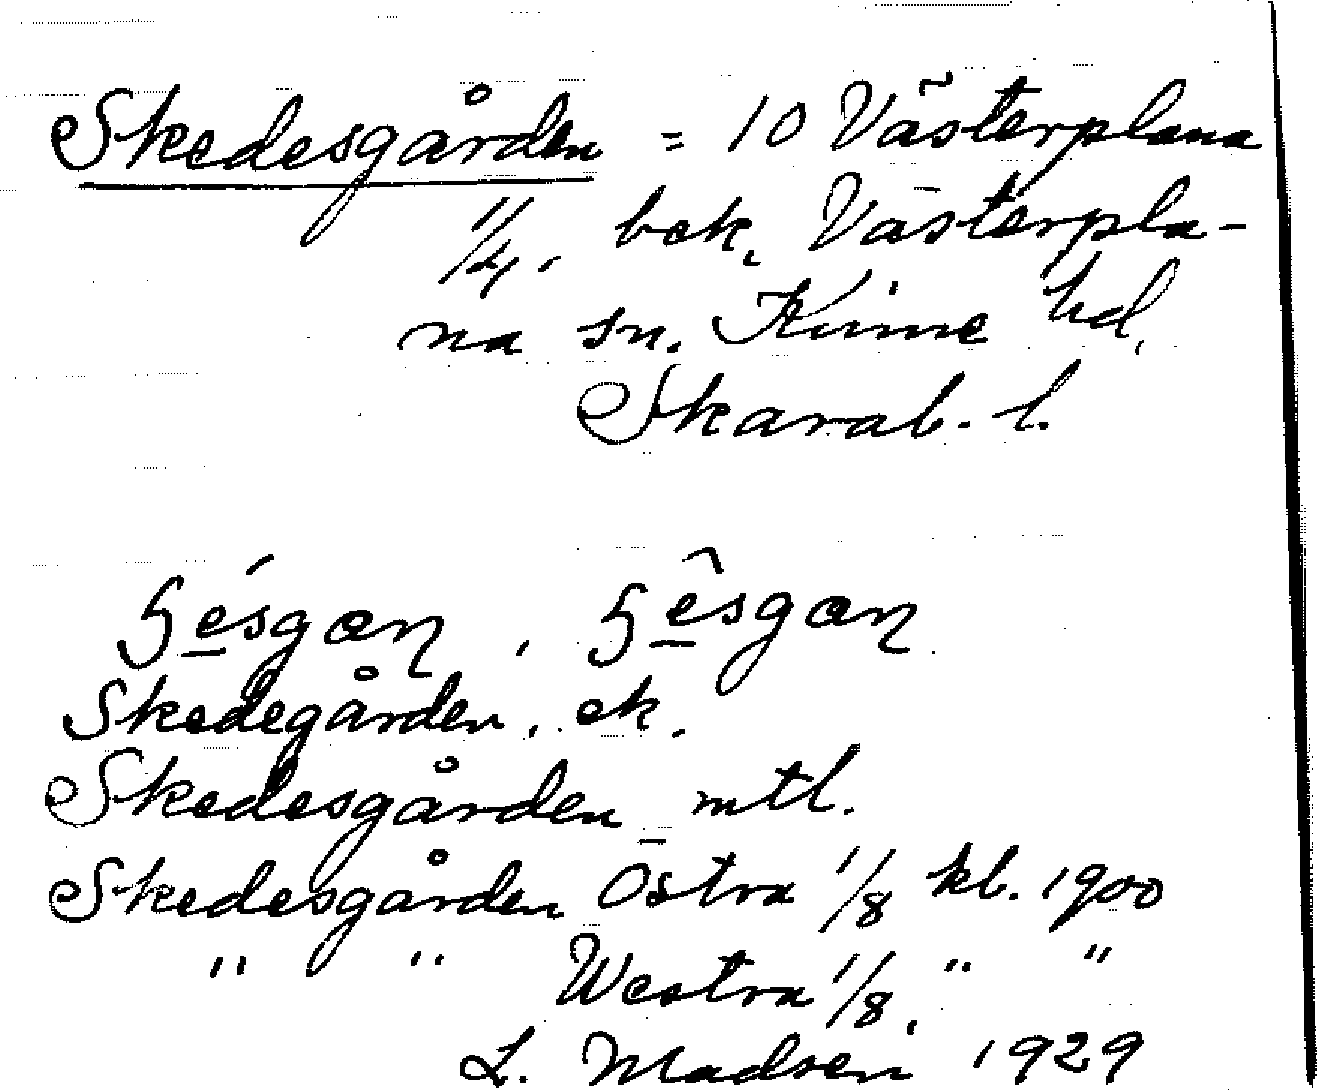 Skedesgården = 10 Västerplana
1/4, bek. Västerpla-
na sn. Kinne hd,
Skarab. l.
Skedegården, ek.
Skedesgården mtl.
Skedesgården Östra 1/8 kb. 1900
" " Westra 1/8, " "
L. Madsen 1929